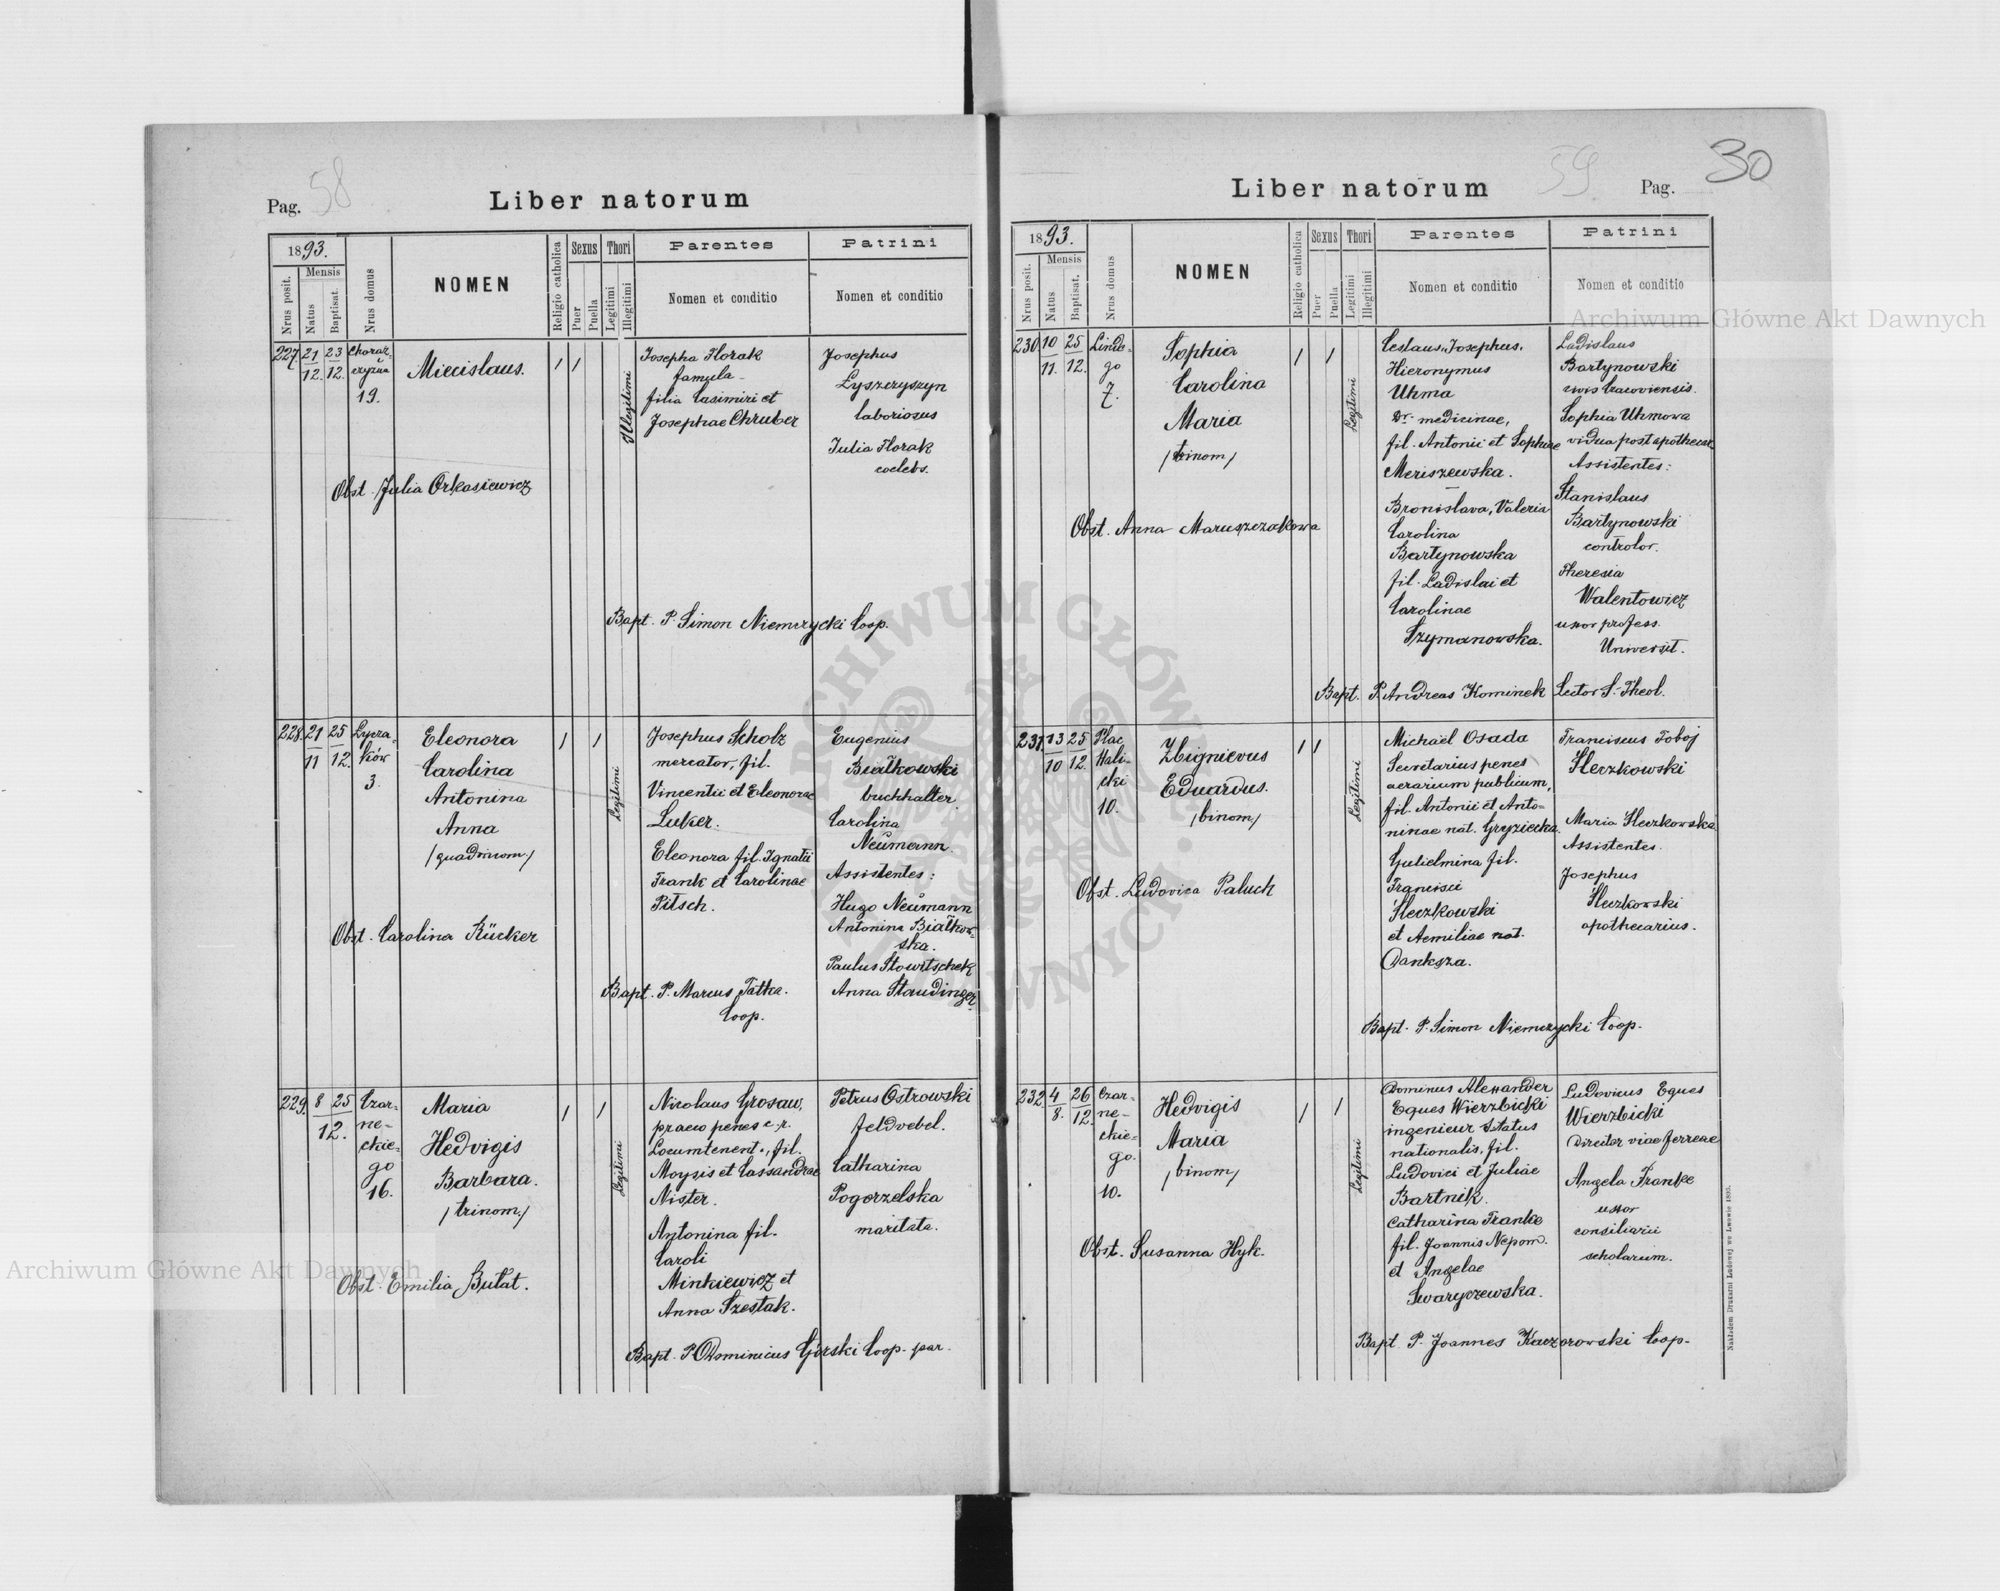 Pag. 58
Liber natorum
1893.
Mensis
Nrus posit.
Natus
Baptisat.
Nrus domus
NOMEN
Religio catholica
Sexus
Puer
Puella
Thori
Legitimi
Illegitimi
Parentes
Nomen et conditio
Patrini
Nomen et conditio
227. 21/12. 23/12.
Choraż-
czyzna
19.
Miecislaus.
/ /
Illegitimi
Josepha Horak
famula
filia Casimiri et
Josephae Chruber
Josephus
Łyszczyszyn
laboriosus
Julia Horak
coelebs.
Obst. Julia Orkasiewicz
Bapt. P. Simon Niemczycki Coop.
228. 21/11 25/12.
Łycza-
ków
3.
Eleonora
Carolina
Antonina
Anna
/quadrinom./
/ /
Legitimi
Josephus Scholz
mercator, fil.
Vincentii et Eleonorae
Luker.
Eleonora fil. Ignatii
Frank et Carolinae
Pitsch.
Eugenius
Białkowski
buchhalter
Carolina
Neumann.
Assistentes:
Hugo Neumann
Antonina Białkow-
ska.
Paulus Stowitschek
Anna Staudinger.
Obst. Carolina Rücker
Bapt. P. Marcus Fatka.
Coop.
229. 8 25
12.
Czar-
ne-
ckie-
go
16.
Maria
Hedvigis
Barbara.
/trinom./
/ /
Legitimi
Nicolaus Grosaw,
praeco penes c. r.
Locumtenent., fil.
Moysis et Cassandrae
Nister.
Antonina fil.
Caroli
Minkiewicz et
Anna Szestak.
Petrus Ostrowski
feldvebel.
Catharina
Pogorzelska
maritata.
Obst. Emilia Bułat.
Bapt. P. Dominicus Górski Coop. par.
59
Pag. 30
Liber natorum
1893.
Mensis
Nrus posit.
Natus
Baptisat.
Nrus domus
NOMEN
Religio catholica
Sexus
Puer
Puella
Thori
Legitimi
Illegitimi
Parentes
Nomen et conditio
Patrini
Nomen et conditio
230. 10/11. 25/12.
Linde-
go
7.
Sophia
Carolina
Maria
/trinom/
/ /
Legitimi
Ceslaus, Josephus,
Hieronymus
Uhma
Dr. medicinae,
fil. Antonii et Sophiae
Meriszewska.
Bronislava, Valeria
Carolina
Bartynowska
fil. Ladislai et
Carolinae
Szymanowska.
Ladislaus
Bartynowski
civis Cracoviensis.
Sophia Uhmowa
vidua post apothecar.
Assistentes:
Stanislaus
Bartynowski
controlor.
Theresia
Walentowicz
uxor profess.
Universit.
Obst. Anna Maruszczakowa
Bapt. P. Andreas Kominek Lector S. Theol.
231. 13/10 25/12.
Plac
Hali-
cki
10.
Zbignievus
Eduardus.
/binom/
/ /
Legitimi
Michaël Osada
Secretarius penes
aerarium publicum,
fil. Antonii et Anto-
ninae nat. Gryziecka.
Gulielmina fil.
Francisci
Śleczkowski
et Aemiliae nat.
Danksza.
Franciscus Foboj
Śleczkowski
Maria Śleczkowska
Assistentes.
Josephus
Śleczkowski
apothecarius.
Obst. Ludovica Paluch
Bapt. P. Simon Niemczycki Coop.
232 4/8. 26/12.
Czar-
ne-
ckie-
go.
10.
Hedvigis
Maria
/binom/
/ /
Legitimi
Dominus Alexander
Eques Wierzbicki
ingenieur status
nationalis, fil.
Ludovici et Juliae
Bartnik.
Catharina Franke
fil. Joannis Nepom.
et Angelae
Swaryczewska.
Ludovicus Eques
Wierzbicki
Director viae ferreae
Angela Franke
uxor
consiliarii
scholarum.
Obst. Susanna Hyk.
Bapt. P. Joannes Kaczorowski Coop.
Nakładem Drukarni Ludowej we Lwowie
Archiwum Główne Akt Dawnych
Archiwum Główne Akt Dawnych
ARCHIWUM GŁÓWNE AKT DAWNYCH